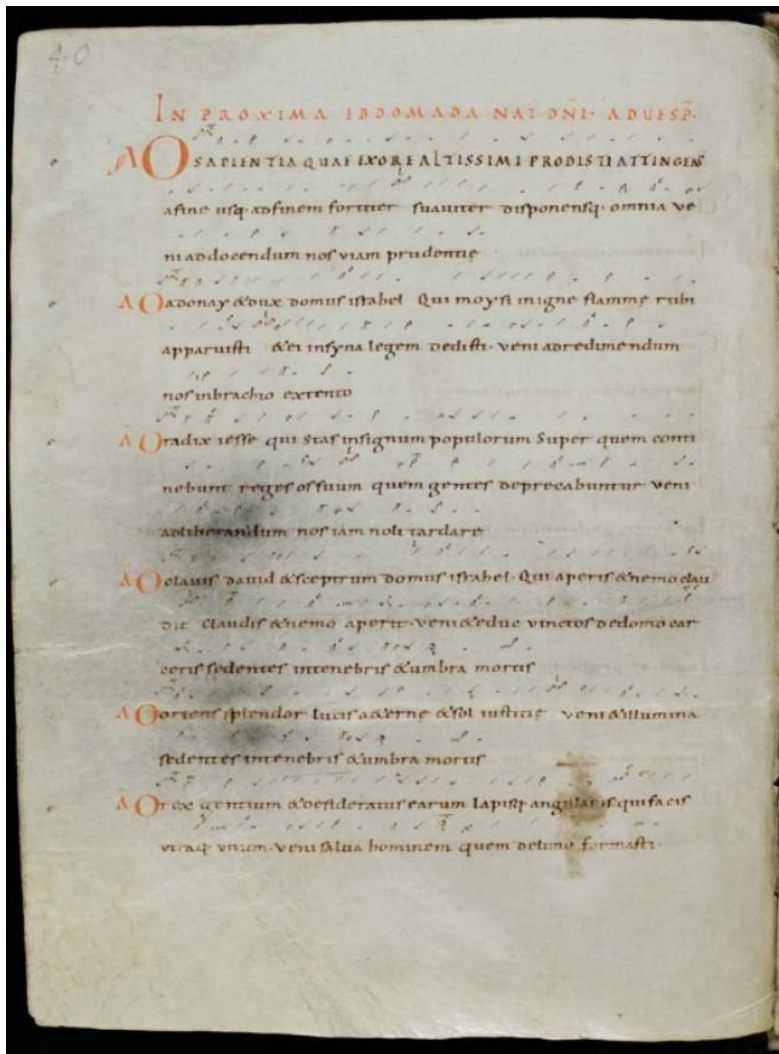 40
IN PROXIMA EBDOMADA NAT̄ DN̄I· AD UESP̄·
A O SAPIENTIA QUAE EX ORE ALTISSIMI PRODISTI ATTINGENS
afine usq· adfinem fortiter suauiter disponensq· omnia ve
ni addocendum nos viam prudentię
A O adonay & dux domus israhel Qui moysi inigne flamme rubi
apparuisti & ei insyna legem dedisti· veni adredimendum
nos inbrachio extento
A O radix iesse qui stas insignum populorum Super quem conti
nebunt reges os suum quem gentes deprecabuntur veni
adliberandum nos iam noli tardare
A O clauis dauid & sceptrum domus israhel· Qui aperis & nemo clau
dit claudis & nemo aperit· veni & educ vinctos dedomo car
ceris sedentes intenebris & umbra mortis
A O oriens splendor lucis aeterne & sol iustitię veni & illumina
sedentes intenebris & umbra mortis
A O rex gentium & desideratus earum lapisq· angularis qui facis
utraq· vnum· veni salua hominem quem delimo formasti·